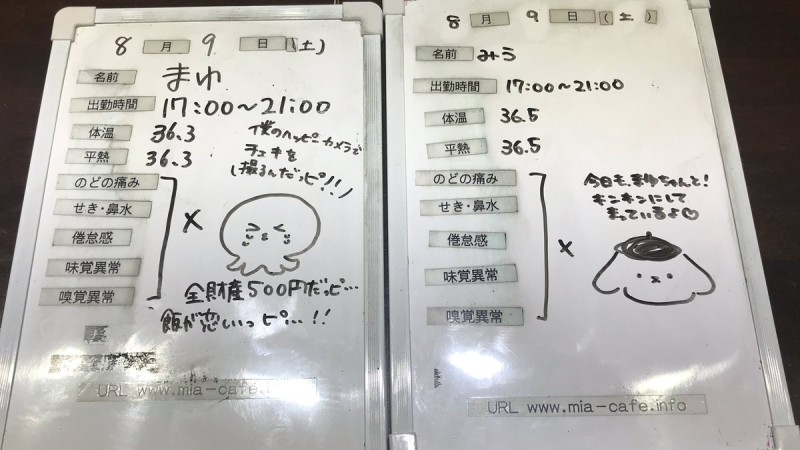 8 月 9 日 (土)
名前 まゆ
出勤時間 17:00~21:00
体温 36.3
平熱 36.3
僕のハッピーカメラで
チェキを
撮るんだっピ!!
のどの痛み
せき・鼻水
倦怠感
味覚異常
嗅覚異常
×
全財産500円だッピ…
飯が恋いっピ…!!
URL www.mia-cafe.
8 月 9 日 (土)
名前 みう
出勤時間 17:00~21:00
体温 36.5
平熱 36.5
のどの痛み
せき・鼻水
倦怠感
味覚異常
嗅覚異常
×
今日も、まゆちゃんと!
キンキンにして
まっているよ♡
URL www.mia-cafe.info